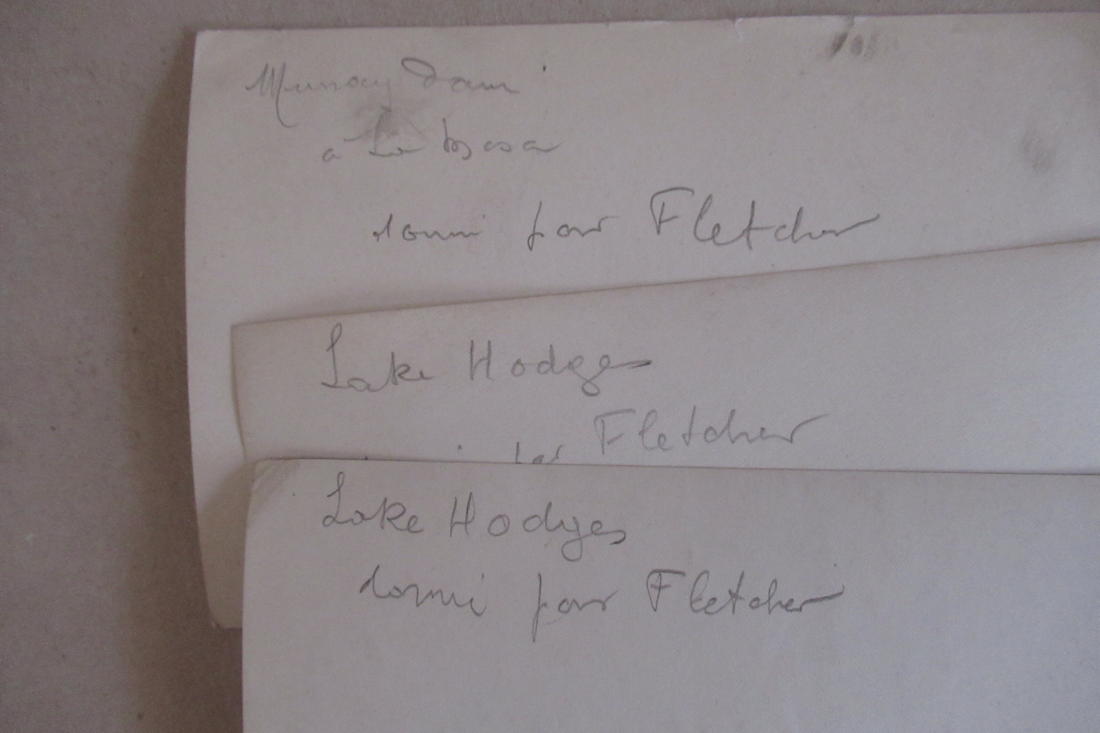 Murray dam
à La Mesa
donné par Fletcher
Lake Hodges
par Fletcher
Lake Hodges
donné par Fletcher